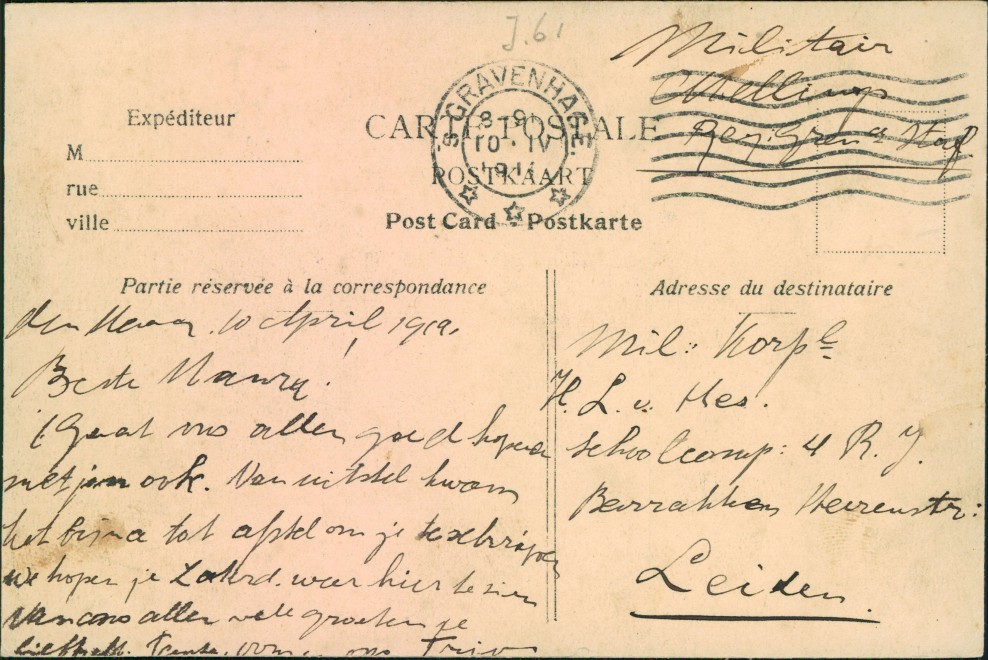 J.61
Militair
Reg. Gren. Staf
'S GRAVENHAGE
8-9
10·IV
191
Expéditeur
M
rue
ville
CARTE POSTALE
POSTKAART
Post Card Postkarte
Partie réservée à la correspondance
den Haag. 10 April 1919.
Beste
't Gaat ons allen goed hopen
met jou ook. Van uitstel kwam
het bijna tot afstel om je te schrijven
We hopen je Zaterd. weer hier te zien
Van ons allen vele groeten je
liefheb. Tante
Adresse du destinataire
Mil: Korpl
H. L. v. Hes.
Schoolcomp: 4 R. J.
Barrakken Heerenstr:
Leiden.